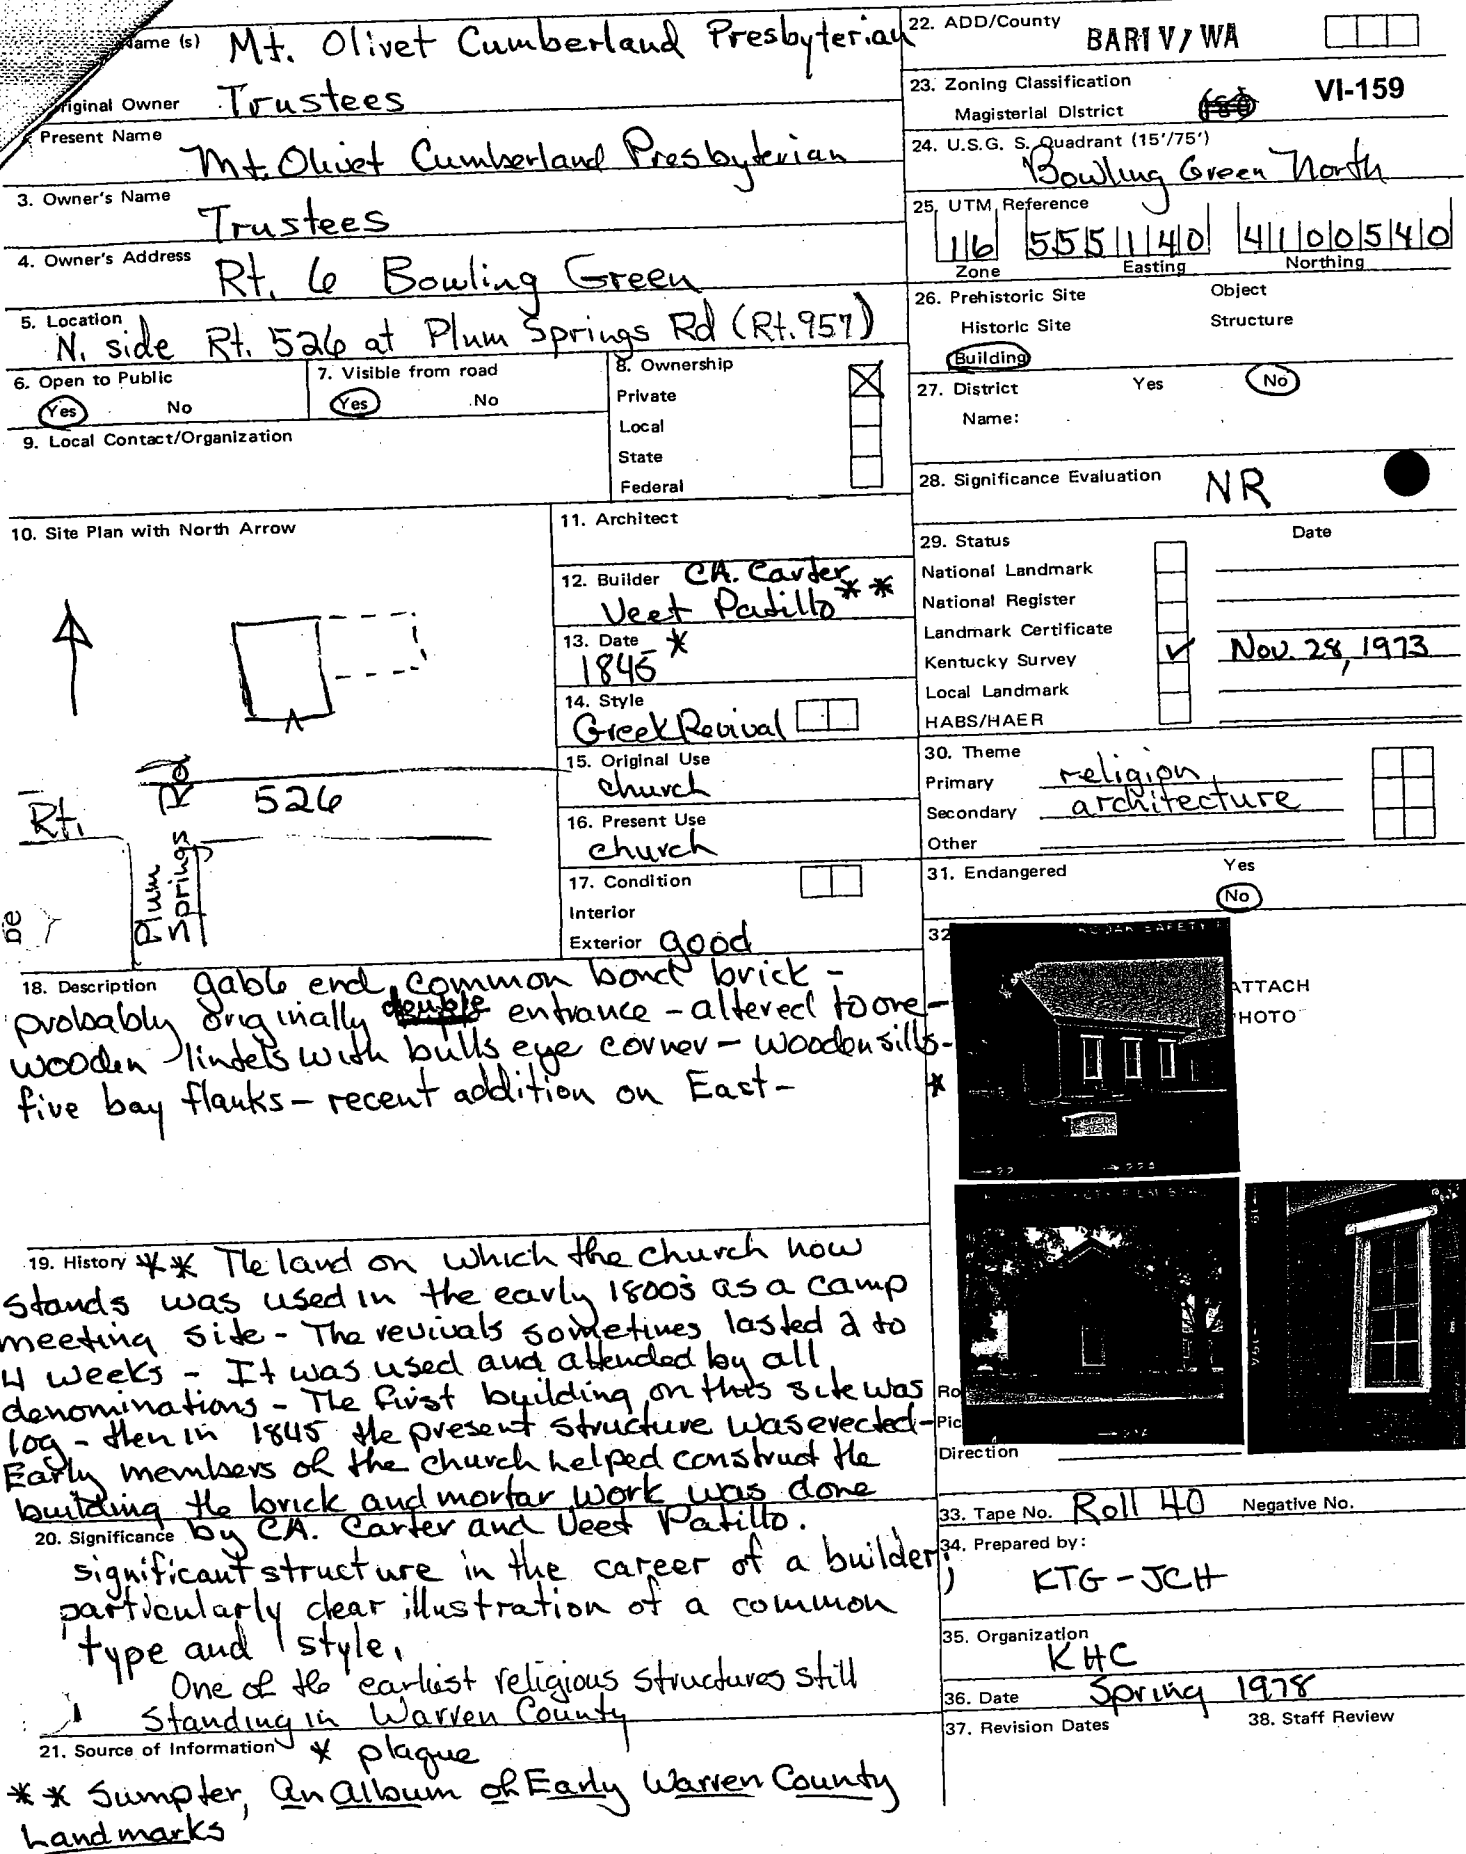 Name (s) Mt. Olivet Cumberland Presbyterian
Original Owner Trustees
Present Name
Mt. Olivet Cumberland Presbyterian
3. Owner's Name
Trustees
4. Owner's Address Rt. 6 Bowling Green
5. Location
N. side Rt. 526 at Plum Springs Rd (Rt. 957)
6. Open to Public
Yes No
7. Visible from road
Yes No
8. Ownership
Private
Local
State
Federal
9. Local Contact/Organization
10. Site Plan with North Arrow
Rt. 526
Plum Springs Rd
11. Architect
12. Builder CA. Carter
Veet Patillo **
13. Date *
1845
14. Style
Greek Revival
15. Original Use
church
16. Present Use
church
17. Condition
Interior
Exterior good
18. Description gable end, common bond brick -
probably originally double entrance - altered to one -
wooden lintels with bulls eye corner - wooden sills -
five bay flanks - recent addition on East - *
19. History ** The land on which the church now
stands was used in the early 1800s as a camp
meeting site - The revivals sometimes lasted 2 to
4 weeks - It was used and attended by all
denominations - The first building on this site was
log - then in 1845 the present structure was erected -
Early members of the church helped construct the
building the brick and mortar work was done
by CA. Carter and Veet Patillo.
20. Significance
significant structure in the career of a builder;
particularly clear illustration of a common
type and style.
One of the earliest religious structures still
Standing in Warren County
21. Source of Information * plaque
** Sumpter, An Album of Early Warren County
Landmarks
22. ADD/County BARIV/WA
23. Zoning Classification
Magisterial District
VI-159
24. U.S.G. S. Quadrant (15'/75')
Bowling Green North
25. UTM Reference
16 555140 4100540
Zone Easting Northing
26. Prehistoric Site Object
Historic Site Structure
Building
27. District Yes No
Name:
28. Significance Evaluation NR
29. Status Date
National Landmark
National Register
Landmark Certificate
Kentucky Survey ✓ Nov. 28, 1973
Local Landmark
HABS/HAER
30. Theme
Primary religion
Secondary architecture
Other
31. Endangered Yes
No
32
ATTACH
PHOTO
Ro
Pic
Direction
33. Tape No. Roll 40 Negative No.
34. Prepared by:
KTG - JCH
35. Organization
KHC
36. Date Spring 1978
37. Revision Dates 38. Staff Review